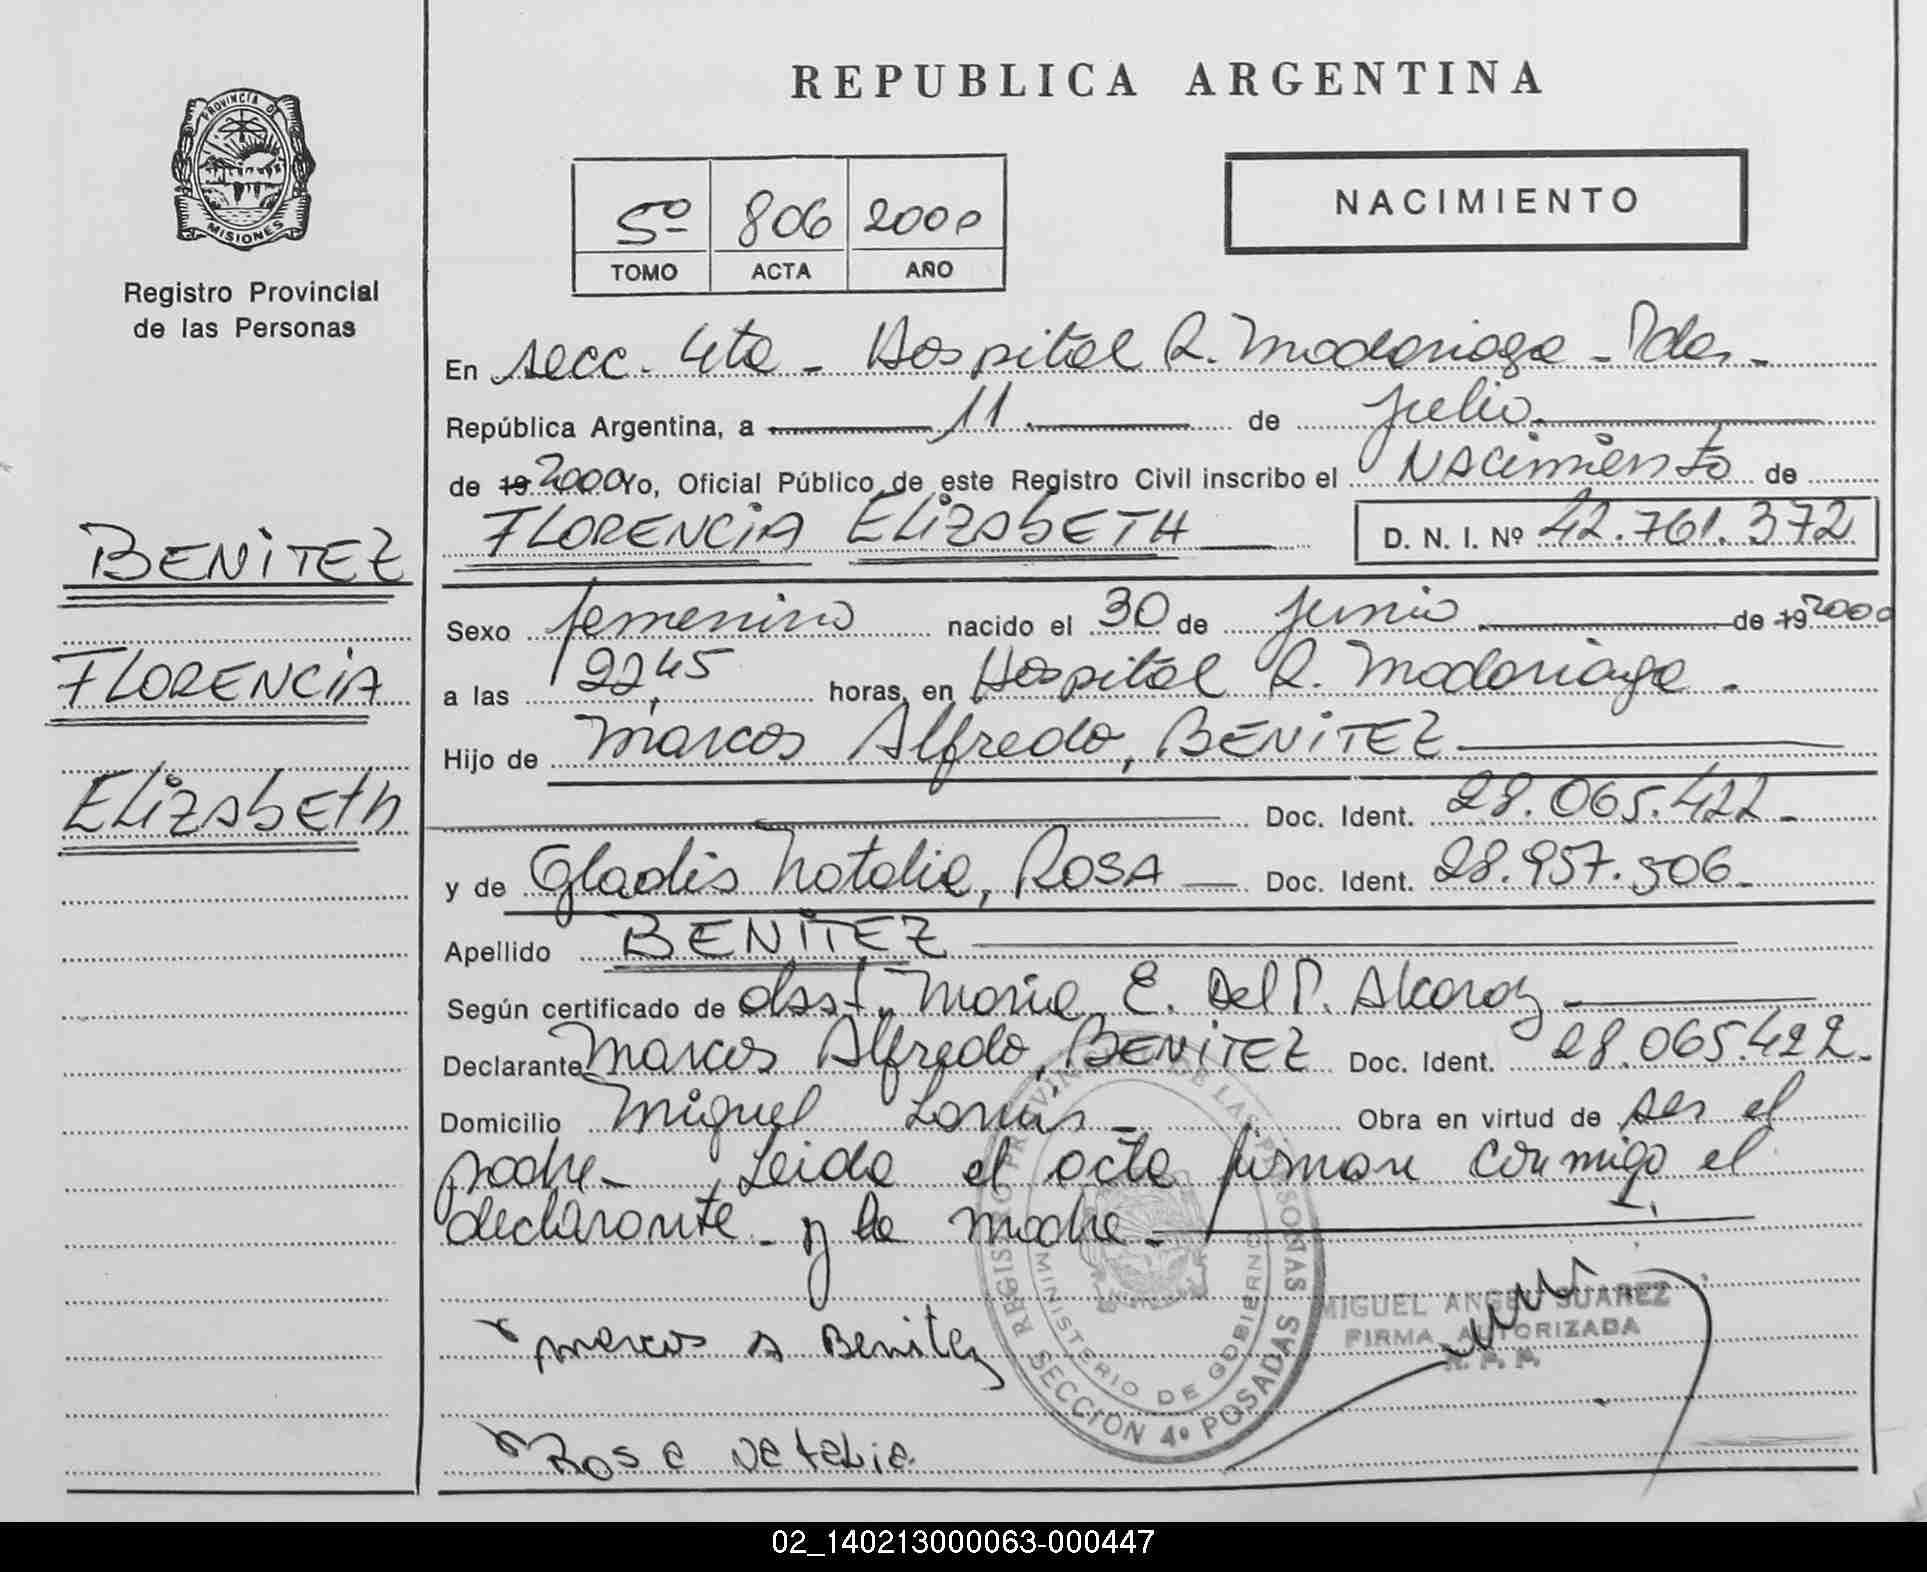 REPUBLICA ARGENTINA
PROVINCIA DE
MISIONES
Registro Provincial
de las Personas
5º 806 2000
TOMO ACTA AÑO
NACIMIENTO
En secc. 4ta - Hospital R. Madariaga - Pdas -
República Argentina, a 11 de julio
de 19 2000 Yo, Oficial Público de este Registro Civil inscribo el Nacimiento de
FLORENCIA ELIZABETH D. N. I. Nº 42.761.372
BENITEZ
FLORENCIA
ELIZABETH
Sexo femenino nacido el 30 de junio de 19 2000
a las 22,45 horas, en Hospital R. Madariaga -
Hijo de Marcos Alfredo, BENITEZ
Doc. Ident. 28.065.422 -
y de Gladis Natalia, ROSA Doc. Ident. 28.957.506 -
Apellido BENITEZ
Según certificado de obst. Maria E. Del P. Alcaraz
Declarante Marcos Alfredo, BENITEZ Doc. Ident. 28.065.422 -
Domicilio Miguel Lanús - Obra en virtud de ser el
padre - Leida el acta firman conmigo el
declarante - y la madre -
Marcos A Benitez
Rosa Natalia
REGISTRO PROVINCIAL DE LAS PERSONAS
MINISTERIO DE GOBIERNO
SECCION 4º POSADAS
MIGUEL ANGEL SUAREZ
FIRMA AUTORIZADA
R. P. P.
02_140213000063-000447